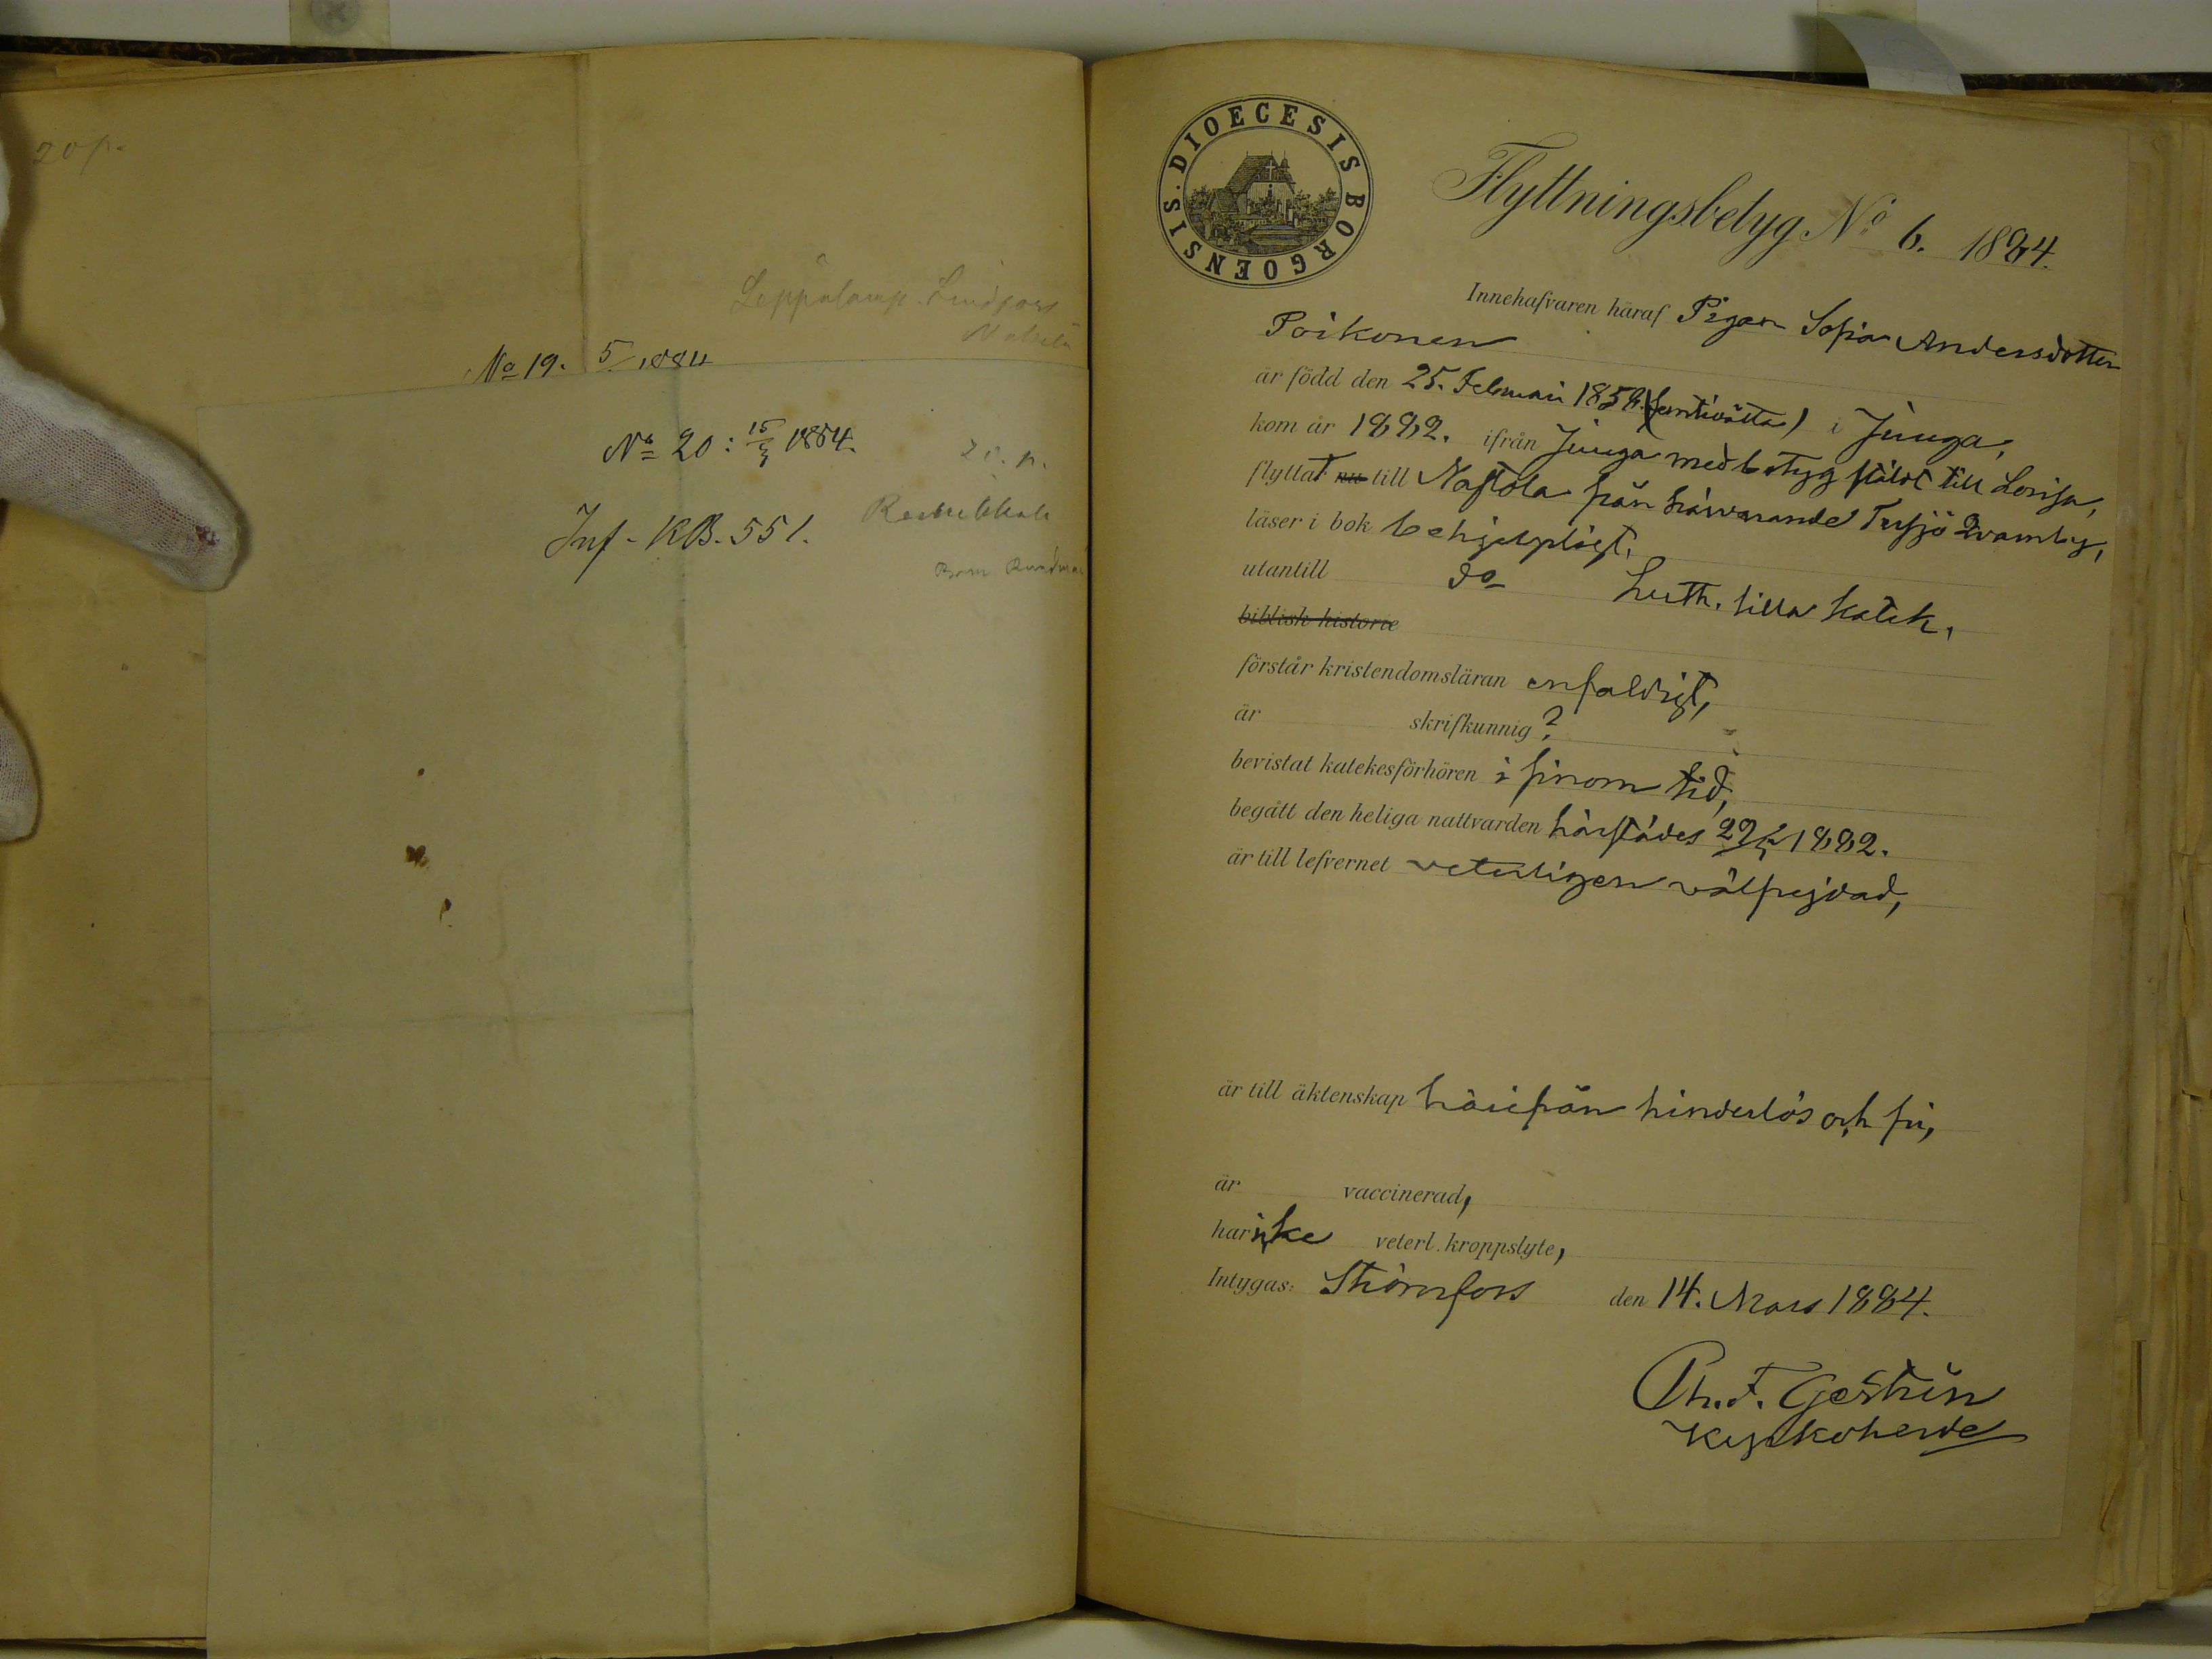 20 p.
Leppälamp. Lindfors
No 19. 5/ 1884
No 20: 15/3 1884.
20. p.
Inf. KB. 551.
DIOECESIS BORGOENSIS.
Flyttningsbetyg No 6. 1884.
Innehafvaren häraf Pigan Sofia Andersdotter
Poikonen
är född den 25. Februari 1858. (femtiåtta) i Juuga,
kom år 1882. ifrån Juuga med betyg stäldt till Lovisa,
flyttat nu till Nastola från härvarande Tesjö Qvarnby,
läser i bok behjelpligt.
utantill do Luth. lilla katek.
biblisk historie
förstår kristendomsläran enfaldigt,
är skrifkunnig?
bevistat katekesförhören i sinom tid,
begått den heliga nattvarden härstädes 1882.
är till lefvernet veterligen välfrejdad,
är till äktenskap härifrån hinderlös och fri,
är vaccinerad,
har icke veterl. kroppslyte,
Intygas: Strömfors den 14. Mars 1884.
Kyrkoherde